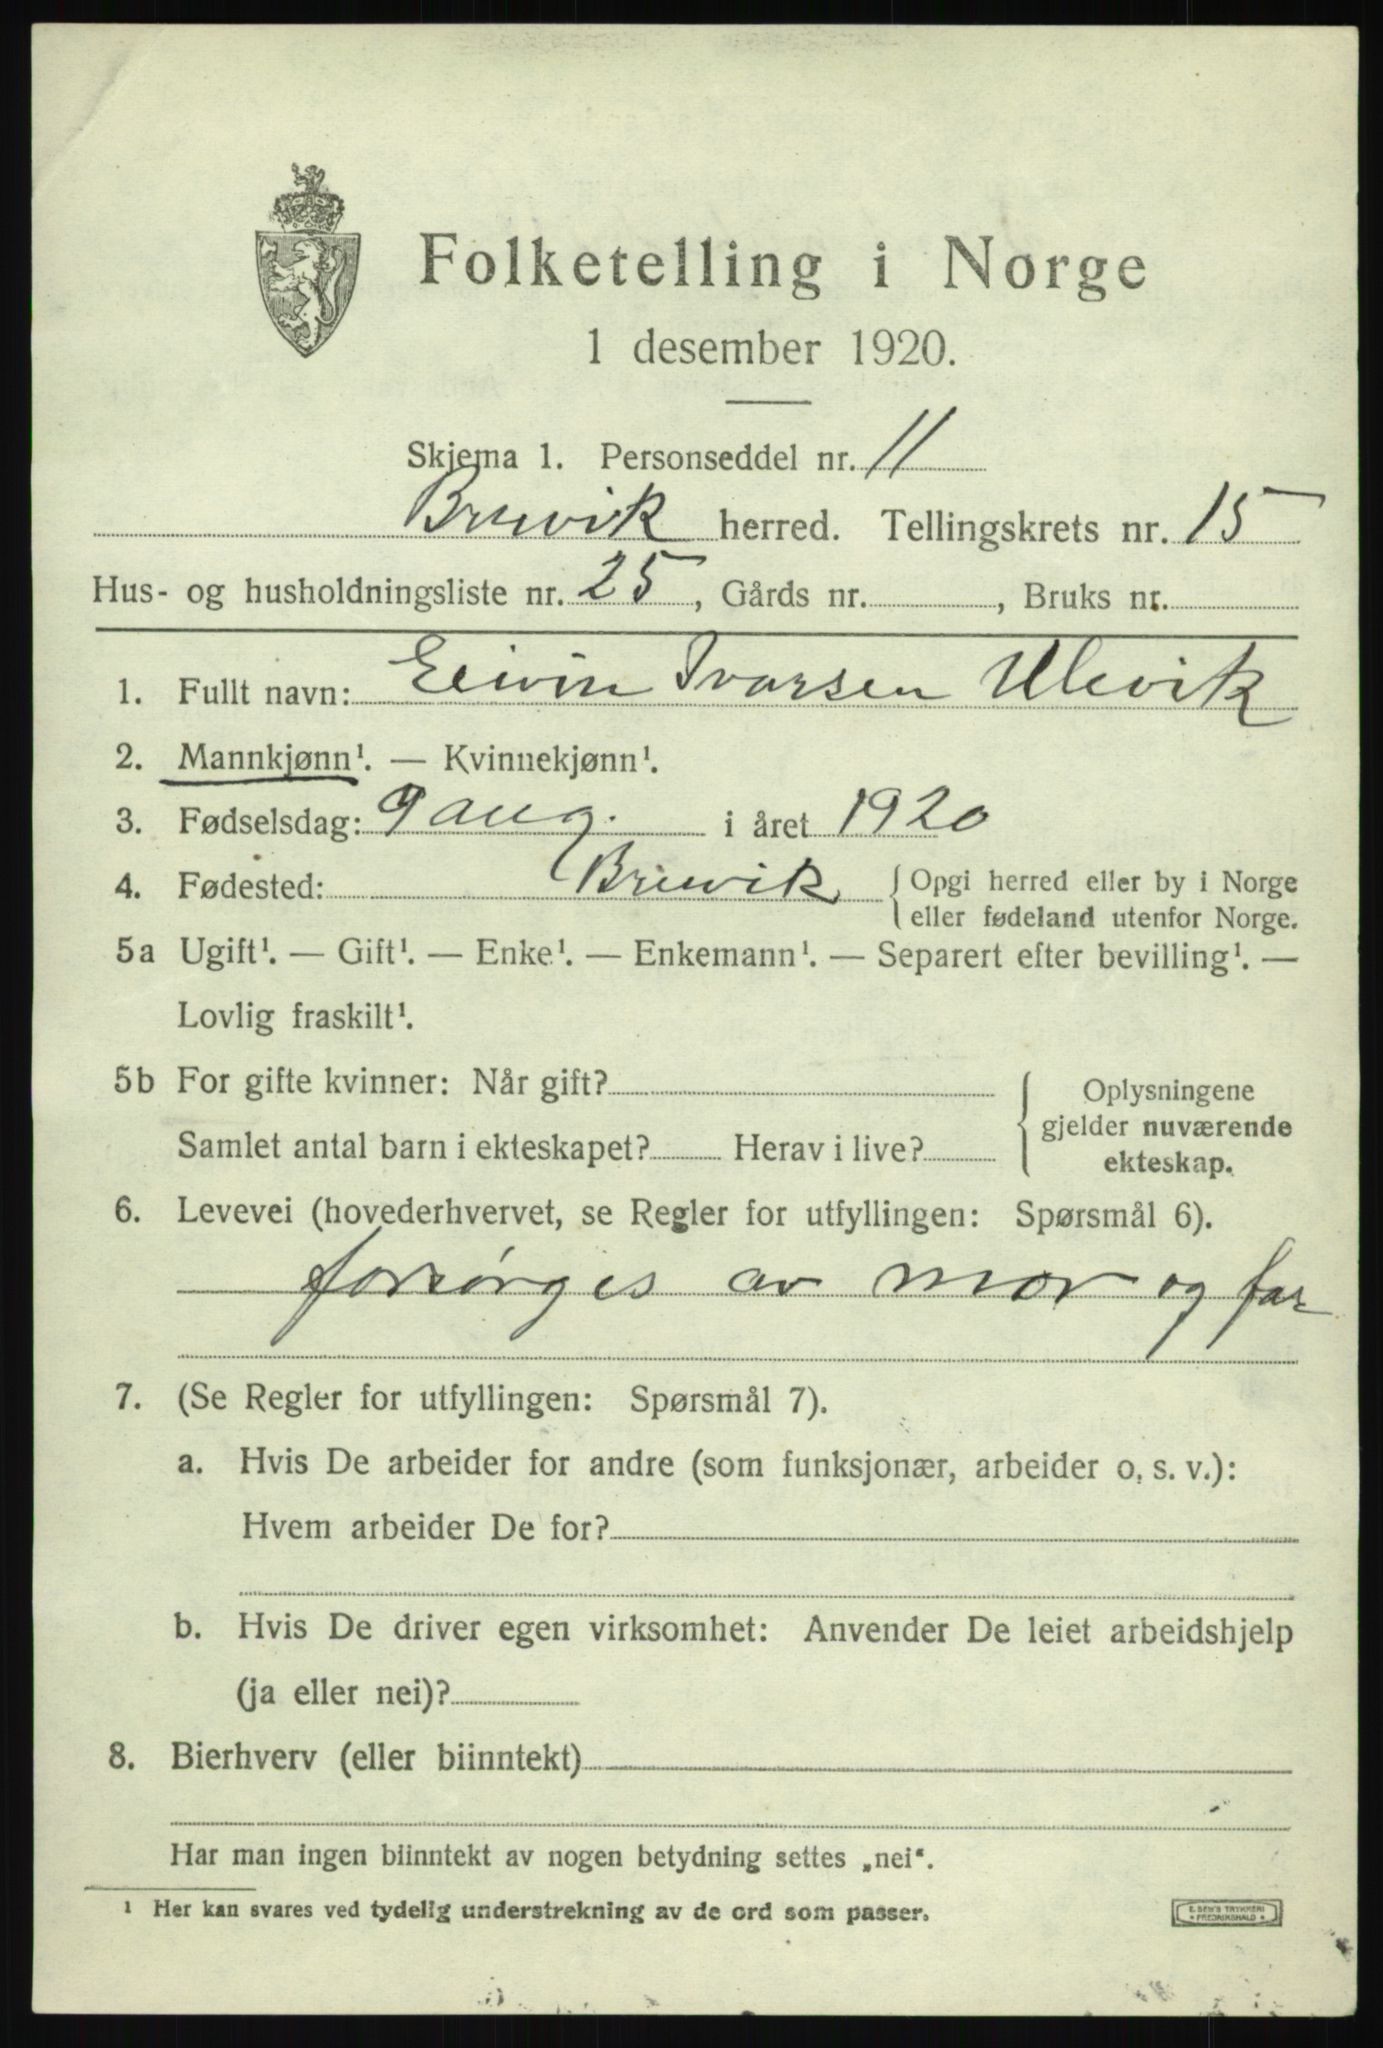 Folketelling i Norge
1 desember 1920.
Skjema 1. Personseddel nr. 11
Bruvik herred. Tellingskrets nr. 15
Hus- og husholdningsliste nr. 25, Gårds nr. , Bruks nr.
1. Fullt navn: Eivin Ivarsen Ulevik
2. Mannkjønn¹. — Kvinnekjønn¹.
3. Fødselsdag: 9 aug. i året 1920
4. Fødested: Bruvik { Opgi herred eller by i Norge
eller fødeland utenfor Norge.
5a Ugift¹. — Gift¹. — Enke¹. — Enkemann¹. — Separert efter bevilling¹. —
Lovlig fraskilt¹.
5b For gifte kvinner: Når gift?
Samlet antal barn i ekteskapet? Herav i live?
{ Oplysningene
gjelder nuværende
ekteskap.
6. Levevei (hovederhvervet, se Regler for utfyllingen: Spørsmål 6).
forsørges av mor og far
7. (Se Regler for utfyllingen: Spørsmål 7).
a. Hvis De arbeider for andre (som funksjonær, arbeider o. s. v.):
Hvem arbeider De for?
b. Hvis De driver egen virksomhet: Anvender De leiet arbeidshjelp
(ja eller nei)?
8. Bierhverv (eller biinntekt)
Har man ingen biinntekt av nogen betydning settes „nei“.
¹ Her kan svares ved tydelig understrekning av de ord som passer.
E. SEM'S TRYKKERI
* FREDRIKSHALD *